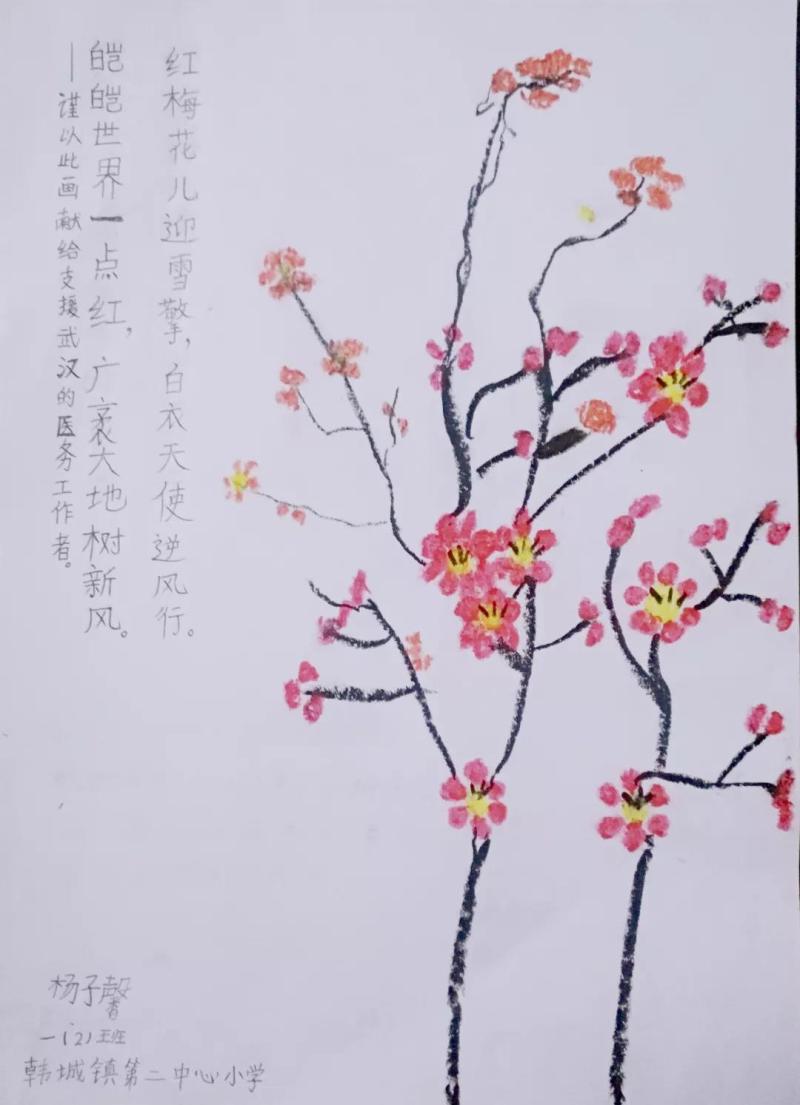 红梅花儿迎雪擎，白衣天使逆风行。
皑皑世界一点红，广袤大地树新风。
—谨以此画献给支援武汉的医务工作者。
杨子馨
一（2）班
韩城镇第二中心小学